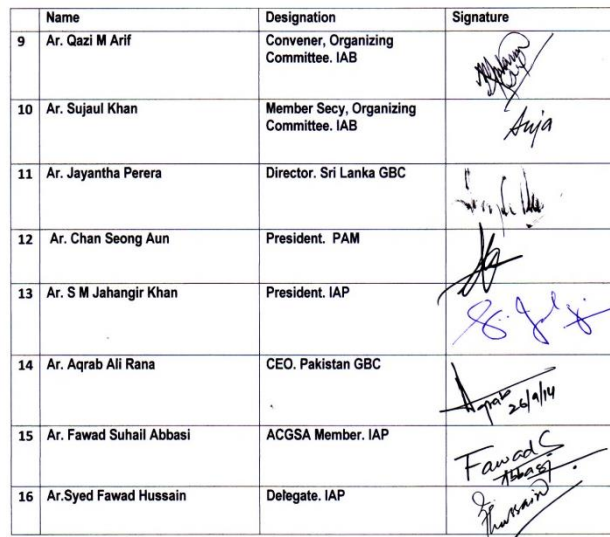 Name Designation Signature
9 Ar. Qazi M Arif Convener, Organizing
Committee. IAB
10 Ar. Sujaul Khan Member Secy, Organizing
Committee. IAB
Suja
11 Ar. Jayantha Perera Director. Sri Lanka GBC
12 Ar. Chan Seong Aun President. PAM
13 Ar. S M Jahangir Khan President. IAP
14 Ar. Aqrab Ali Rana CEO. Pakistan GBC
Aqrab 26/9/14
15 Ar. Fawad Suhail Abbasi ACGSA Member. IAP
Fawad S
Abbasi
16 Ar.Syed Fawad Hussain Delegate. IAP
Hussain